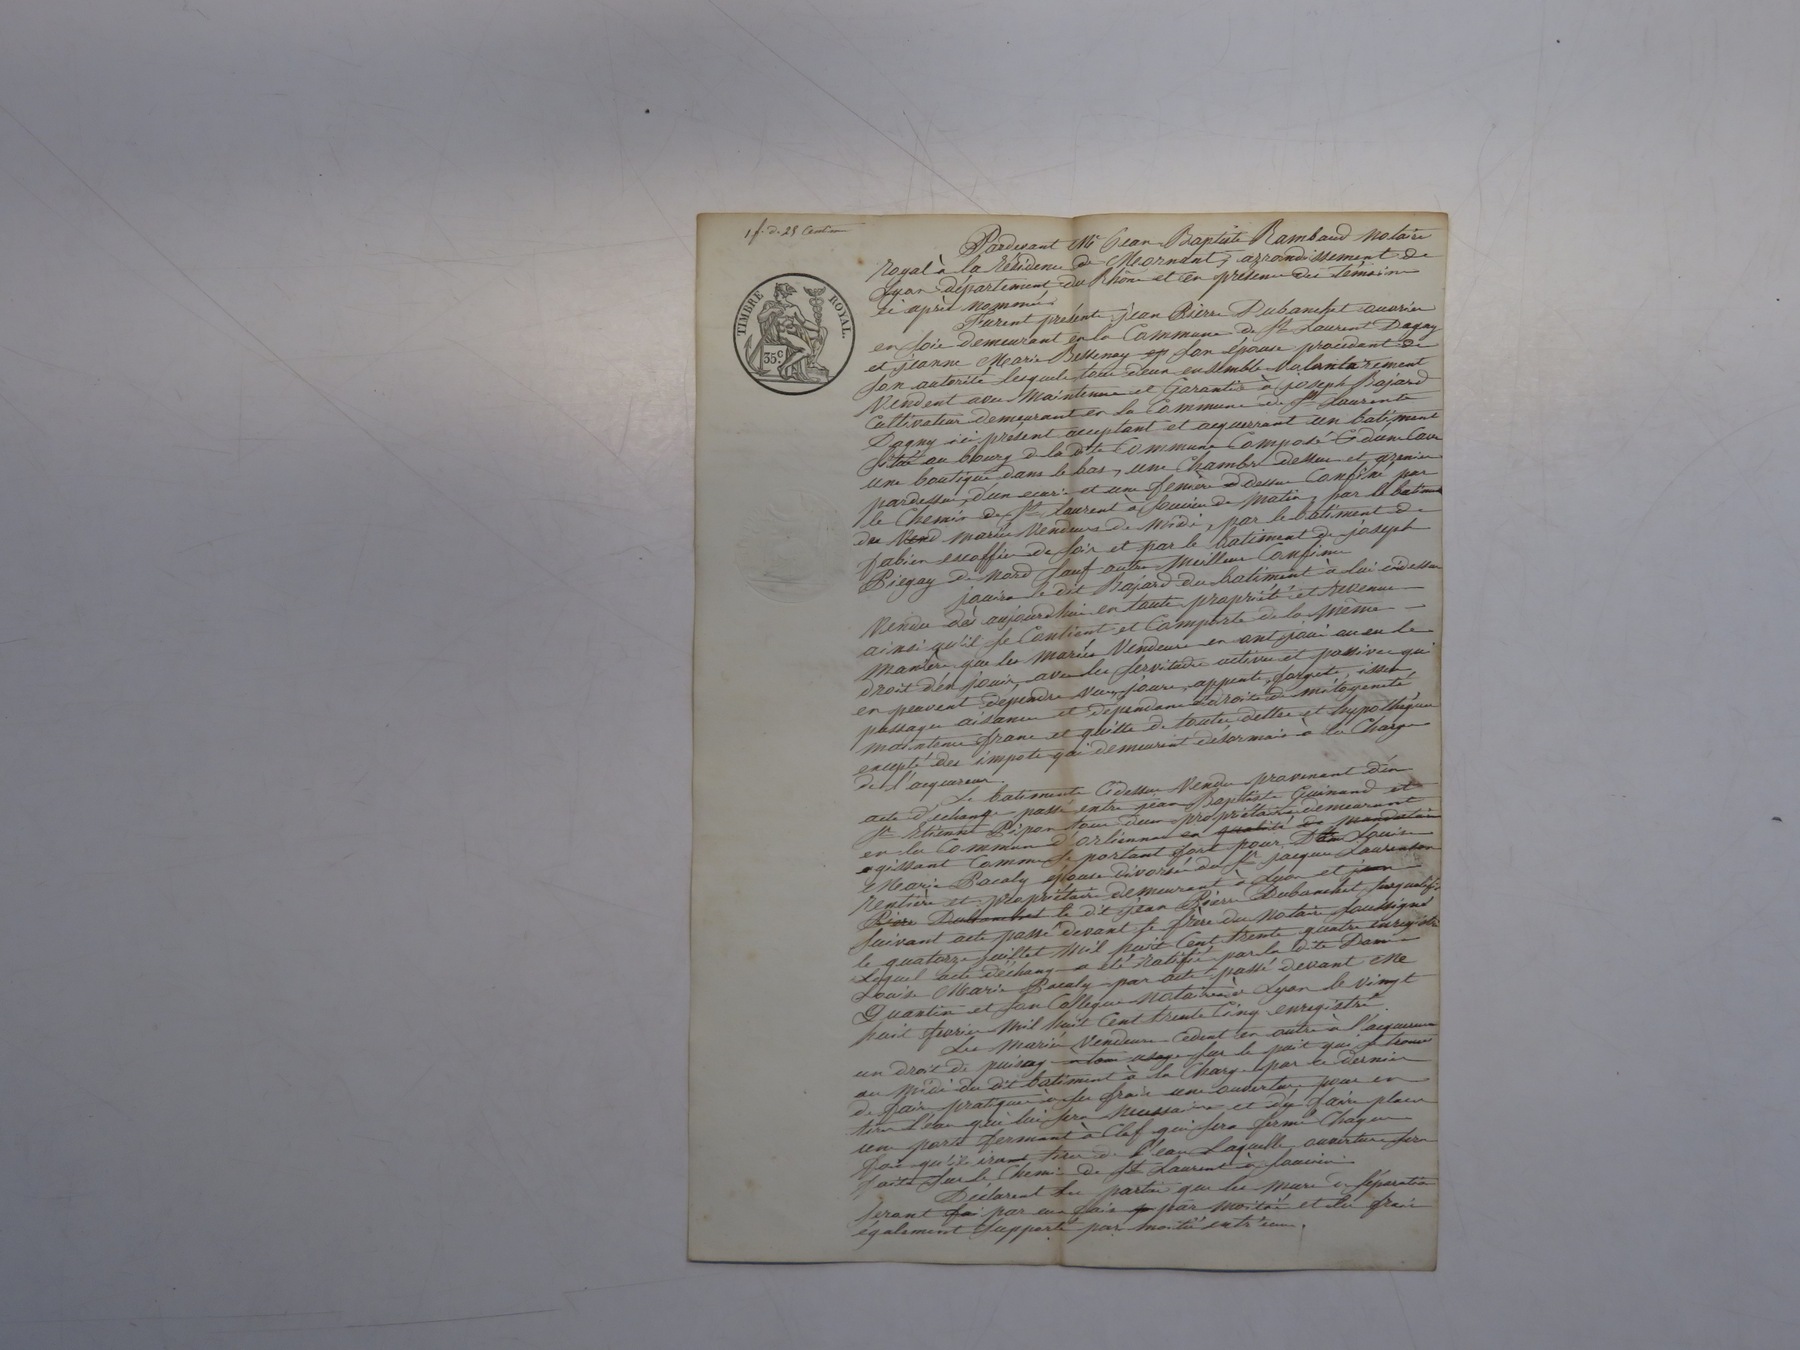 1 f. de 25 Centim
TIMBRE ROYAL
35 c
Pardevant Me Jean Baptiste Rambaud Notaire
Royal à la Résidence de Mornant, arrondissement de
Lyon département du Rhône et en présence des témoins
ci après nommés.
Furent présents jean Pierre Dubanchet ouvrier
en soie demeurant en la Commune de St Laurent Dagny
et jeanne Marie Bessenay son épouse procédant de
son autorité, lesquels tous deux ensemble Volontairement
Vendent avec Maintenue et Garantie à joseph Bajard
Cultivateur demeurant en la Commune de St Laurent
Dagny ici présent acceptant et acquerrant un batiment
situé au bourg de la dte Commune Composé d'une Cave
une boutique dans le bas, une Chambre dessus et grenier
pardessus, d'un ecurie et une fenière dessus Confiné par
le Chemin de St Laurent à Soucieu de Matin, par le batiment
des Vend mariés Vendeurs de Midi, par le batiment de
fabien escoffier de soir et par le batiment de joseph
Piegay de Nord sauf autre Meilleur Confins
jouira le dit Bajard du batiment à lui cidessus
Vendu dès aujourdhui en toute propriété et revenu
ainsi qu'il se Contient et Comporte de la même
Manière que les Mariés Vendeurs en ont joui ou eu le
droit d'en jouir, avec les servitudes actives et passives qui
en peuvent dépendre Vues, jours, appents, forgets, issus,
passages aisances et dépendances droits de mitoyenneté
maintenu franc et quitte de toutes dettes et hypothèques
excepté des impots qui demeurent désormais à la Charge
de l'acquereur.
Le batiments Cidessus Vendu provenant d'un
acte d'échange passé entre jean Baptiste Guinand et
St Etienne Pipon tous deux propriétaires demeurant
en la Commune d'orlienas en qualité de mandataire
agissant Comme se portant fort pour Dme Louise
Marie Pacaly épouse divorsée du Sr jacques Laurenson
Rentière et propriétaire demeurant à Lyon et jean
Pierre Dubanchet le dit jean Pierre Dubanchet susqualifié
suivant acte passé devant le frère du Notaire soussigné
le quatorze juillet Mil huit Cent trente quatre enregistré
Lequel acte d'échange a été ratifié par la dite Dame
Louise Marie Pacaly par acte passé devant Me
Quantin et son Collègue Notaires à Lyon le vingt
huit fevrier Mil huit Cent trente Cinq enregistré.
Les Mariés Vendeurs Cèdent en outre à l'acquereur
un droit de puisage à tous usage sur le puit qui se trouve
au Midi du dit batiment à la Charge par ce Dernier
de faire pratiquer à ses frais une ouverture pour en
tirer l'eau qui lui sera Necessaire et d'y faire placer
une porte fermant à Clef qui sera fermé Chaque
fois qu'ils iront tirer de l'eau Laquelle ouverture sera
faite sur le Chemin de St Laurent à Soucieu.
Déclarent les parties que les Murs de séparation
seront par eux fais par Moitié et les frais
également supporté par Moitié entr'eux.